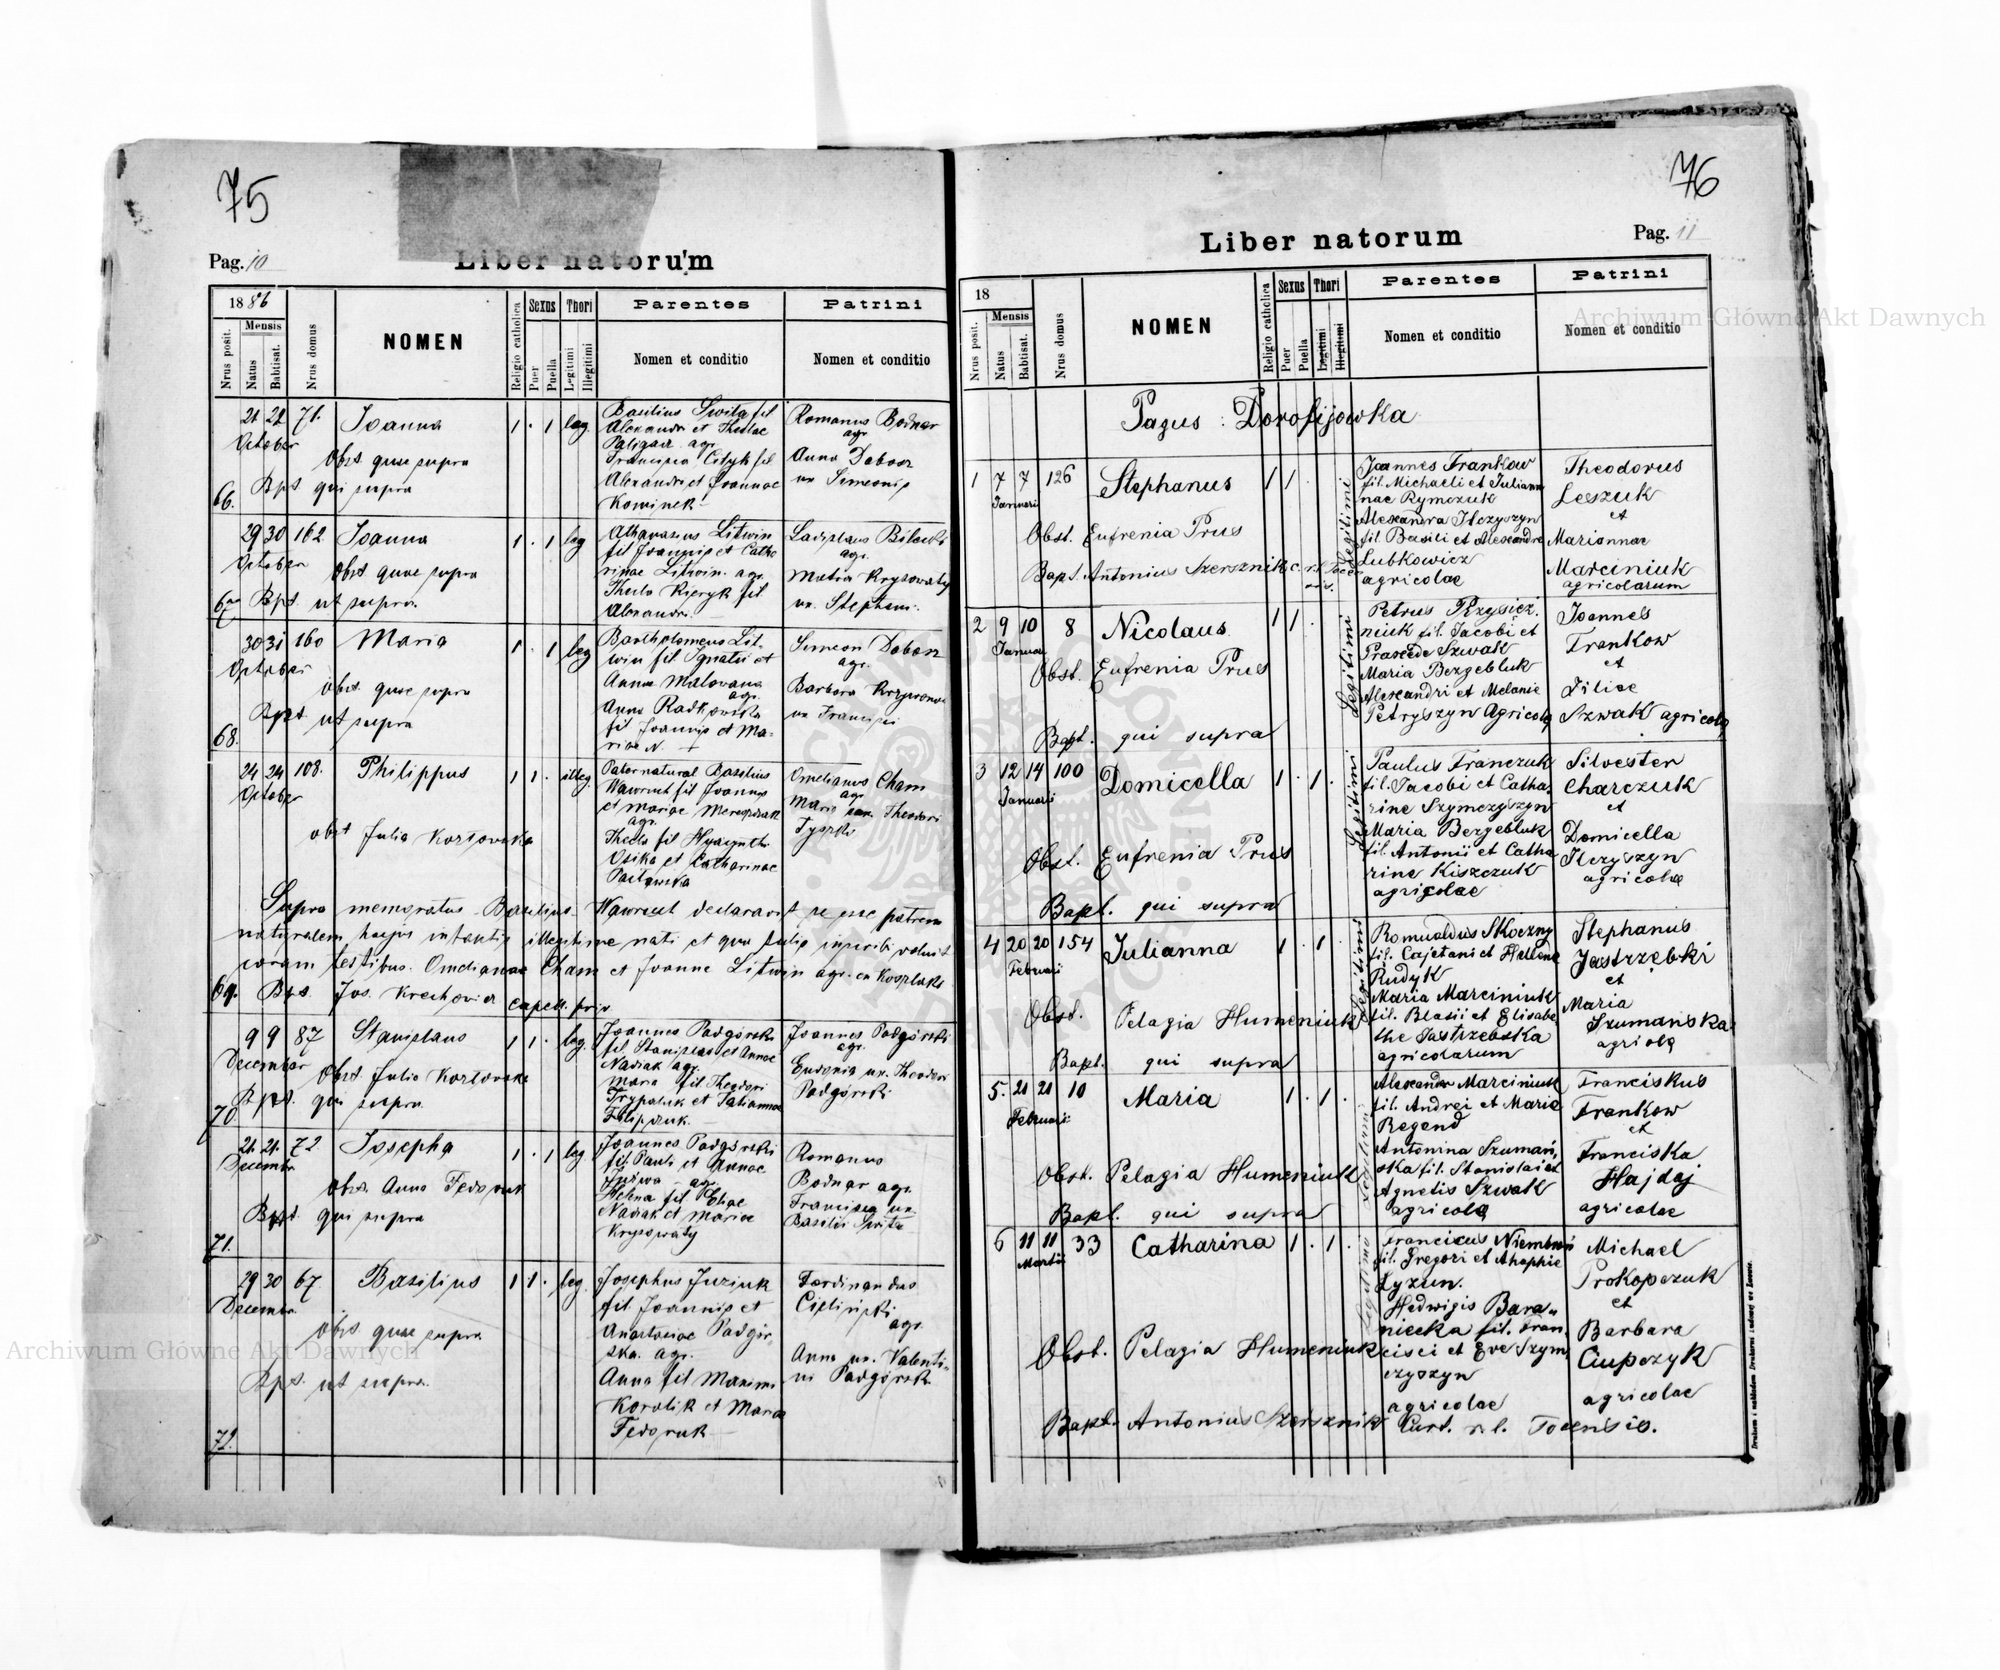 75
Pag. 10
Liber natorum
1886
Mensis
Nrus posit.
Natus
Babtisat.
Nrus domus
NOMEN
Religio catholica
Sexus
Puer
Puella
Thori
Legitimi
Illegitimi
Parentes
Nomen et conditio
Patrini
Nomen et conditio
21 22 71. Joanna 1 . 1 leg.
October
Obst. quae supra
66. Bpt. qui supra
Basilius Swita fil
Alexandri et Theclae
agr.
Francisca fil
Alexandri et Joannae
Kominek
Romanus Bodnar
agr.
Anna Dobosz
ux Simeonis
29 30 162 Joanna 1 . 1 leg
October
Obst quae supra
67 Bpt. ut supra.
Athanasius Litwin
fil Joannis et Catha
rinae Litwin. agr.
Thecla fil
Alexandri.
Ladislaus
agr.
ux. Stephani.
30 31 160 Maria 1 . 1 leg
October
obst. quae supra
Bpt ut supra
68.
Bartholomeus Lit-
win fil Ignatii et
Anna Malovana
agr.
Anna Radkowska
fil Joannis et Ma-
riae N.
Simeon Dobosz
agr.
Barbara
ux Francisci
24 24 108. Philippus 1 1 . illeg.
October
obst Julia Kortowska
Pater natural Basilius
Wawreut fil Joannis
et Mariae
agr.
Thecla fil Hyacynthi
Osika et Catharinae
Omelianus Cham
agr.
Maria Theodori
Supra memoratus Basilius Wawreut declaravit se esse patrem
naturalem hujus infantis illegitime nati et qua talis inscribi voluit
coram testibus: Omeliano Cham et Joanne Litwin agr.
69. Bpt. Jos. capell.
9 9 87 Stanislaus 1 1 . leg.
December
Obst. Julia Kortowska
70. Bpt. qui supra
Joannes Podgórski
fil Stanislai et Annae
Nadiak agr.
Maria fil. Theodori
et Tatiannae
Filipczuk.
Joannes Podgórski
agr.
Eudonia ux. Theodori
Podgórski
21. 21. 72 Josepha 1 . 1 leg
December
obst. Anna Fedoruk
Bpt. qui supra
71.
Joannes Podgórski
fil. Pauli et Annae
agr.
Helena fil Eliae
Nadiak et Mariae
Krysowaty
Romanus
Bodnar agr.
Francisca ux.
Basilii Swita
29 30 67 Basilius 1 1 . leg.
December.
obst quae supra.
Bpt. ut supra.
72.
Josephus Juziuk
fil Joannis et
Anastasiae Podgór-
ska. agr.
Anna fil Maximi
Korolik et Maria
Fedoruk
Ferdinandus
Cieliński
agr.
Anna ux. Valenti-
ni Podgórski
76
Liber natorum
Pag. 11
18
Mensis
Nrus posit.
Natus
Babtisat.
Nrus domus
NOMEN
Religio catholica
Sexus
Puer
Puella
Thori
Legitimi
Illegitimi
Parentes
Nomen et conditio
Patrini
Nomen et conditio
Pagus: Dorofijowka
1 7 7 126 Stephanus 1 1 . Legitimi
Januari
Obst. Eufrenia Prus
Bapt. Antonius Szersznik
Joannes Frankow
fil. Michaeli et Julian
nae Rymczuk
Alexandra Ilczyszyn
fil Basili et Alexandre
Lubkowicz
agricolae
Theodorus
Leszuk
et
Mariannae
Marciniuk
agricolarum
2 9 10 8 Nicolaus 1 1 . Legitimi
Januari
Obst. Eufrenia Prus
Bapt. qui supra
Petrus Przysież
niuk fil. Jacobi et
Praxede Szwak
Maria Bezgebluk
Alexandri et Melanie
Petryszyn Agricolę
Joannes
Frankow
et
Iiliae
Szwak agricolę
3 12 14 100 Domicella 1 . 1 . Legitimi
Januarii
Obst. Eufrenia Prus
Bapt. qui supra
Paulus Franczuk
fil. Jacobi et Catha.
rine Szymczyszyn
Maria Bezgebluk
fil. Antonii et Catha
rine Kiszczuk
agricolae
Silvester
Charczuk
et
Domicella
Ilczyszyn
agricolae
4 20 20 154 Julianna 1 . 1 . Legitimi
Februari
Obst. Pelagia Humeniuk
Bapt. qui supra
Romualdus Skoczny
fil. Cajetani et Hellene
Rudyk
Maria Marciniuk
fil. Blasii et Elisabe
the Jastrzebska
agricolarum
Stephanus
Jastrzebki
et
Maria
Szumańska
agricolę
5. 21 21 10 Maria 1 . 1 .
Februari
Obst. Pelagia Humeniuk
Bapt. qui supra
Alexander Marciniuk
fil. Andrei et Marie
Regend
Antonina Szumań,
ska fil. Stanislai et
Agnetis Szwak
agricolę
Franciskus
Frankow
et
Franciska
Hajdaj
agricolae
6 11 11 33 Catharina 1 . 1 .
Martii
Obst. Pelagia Humeniuk
Francicus
fil. Gregori et Ahaphie
Lyzun.
Hedwigis Bara-
niecka fil. Fran,
cisci et Eve Szym,
czyszyn
agricolae
Michael
Prokopczuk
et
Barbara
Ciupczyk
agricolae
Bapt. Antonius Szersznik Curt. r. l. Toeensis.
Archiwum Główne Akt Dawnych
Archiwum Główne Akt Dawnych